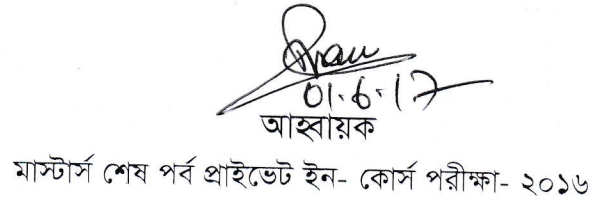 01.6.17
আহ্বায়ক
মাস্টার্স শেষ পর্ব প্রাইভেট ইন- কোর্স পরীক্ষা- ২০১৬